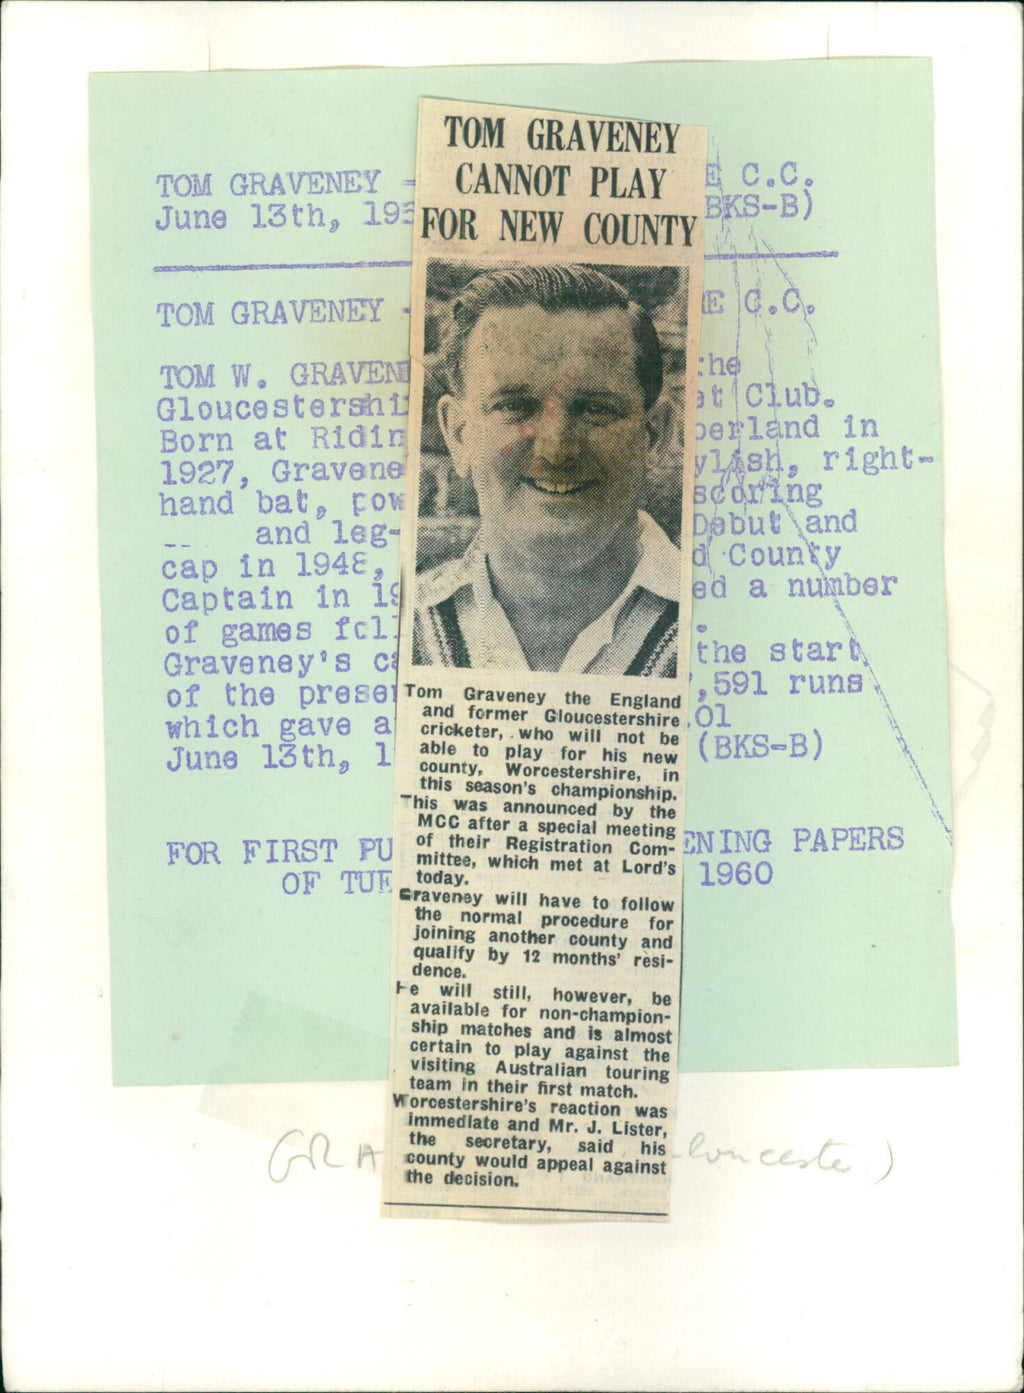 TOM GRAVENEY
CANNOT PLAY
FOR NEW COUNTY
Tom Graveney the England
and former Gloucestershire
cricketer, who will not be
able to play for his new
county, Worcestershire, in
this season's championship.
This was announced by the
MCC after a special meeting
of their Registration Com-
mittee, which met at Lord's
today.
Graveney will have to follow
the normal procedure for
joining another county and
qualify by 12 months' resi-
dence.
He will still, however, be
available for non-champion-
ship matches and is almost
certain to play against the
visiting Australian touring
team in their first match.
Worcestershire's reaction was
immediate and Mr. J. Lister,
the secretary, said his
county would appeal against
the decision.
TOM GRAVENEY - E C.C.
June 13th, 195 BKS-B)
TOM GRAVENEY - RE C.C.
TOM W. GRAVEN the
Gloucestershi et Club.
Born at Ridin berland in
1927, Gravene ylish, right-
hand bat, pow scoring
and leg- Debut and
cap in 1948, d County
Captain in 19 ed a number
of games foll .
Graveney's ca the start
of the prese ,591 runs
which gave a .01
June 13th, 1 (BKS-B)
FOR FIRST PU ENING PAPERS
OF TUE 1960
GRA loucester)